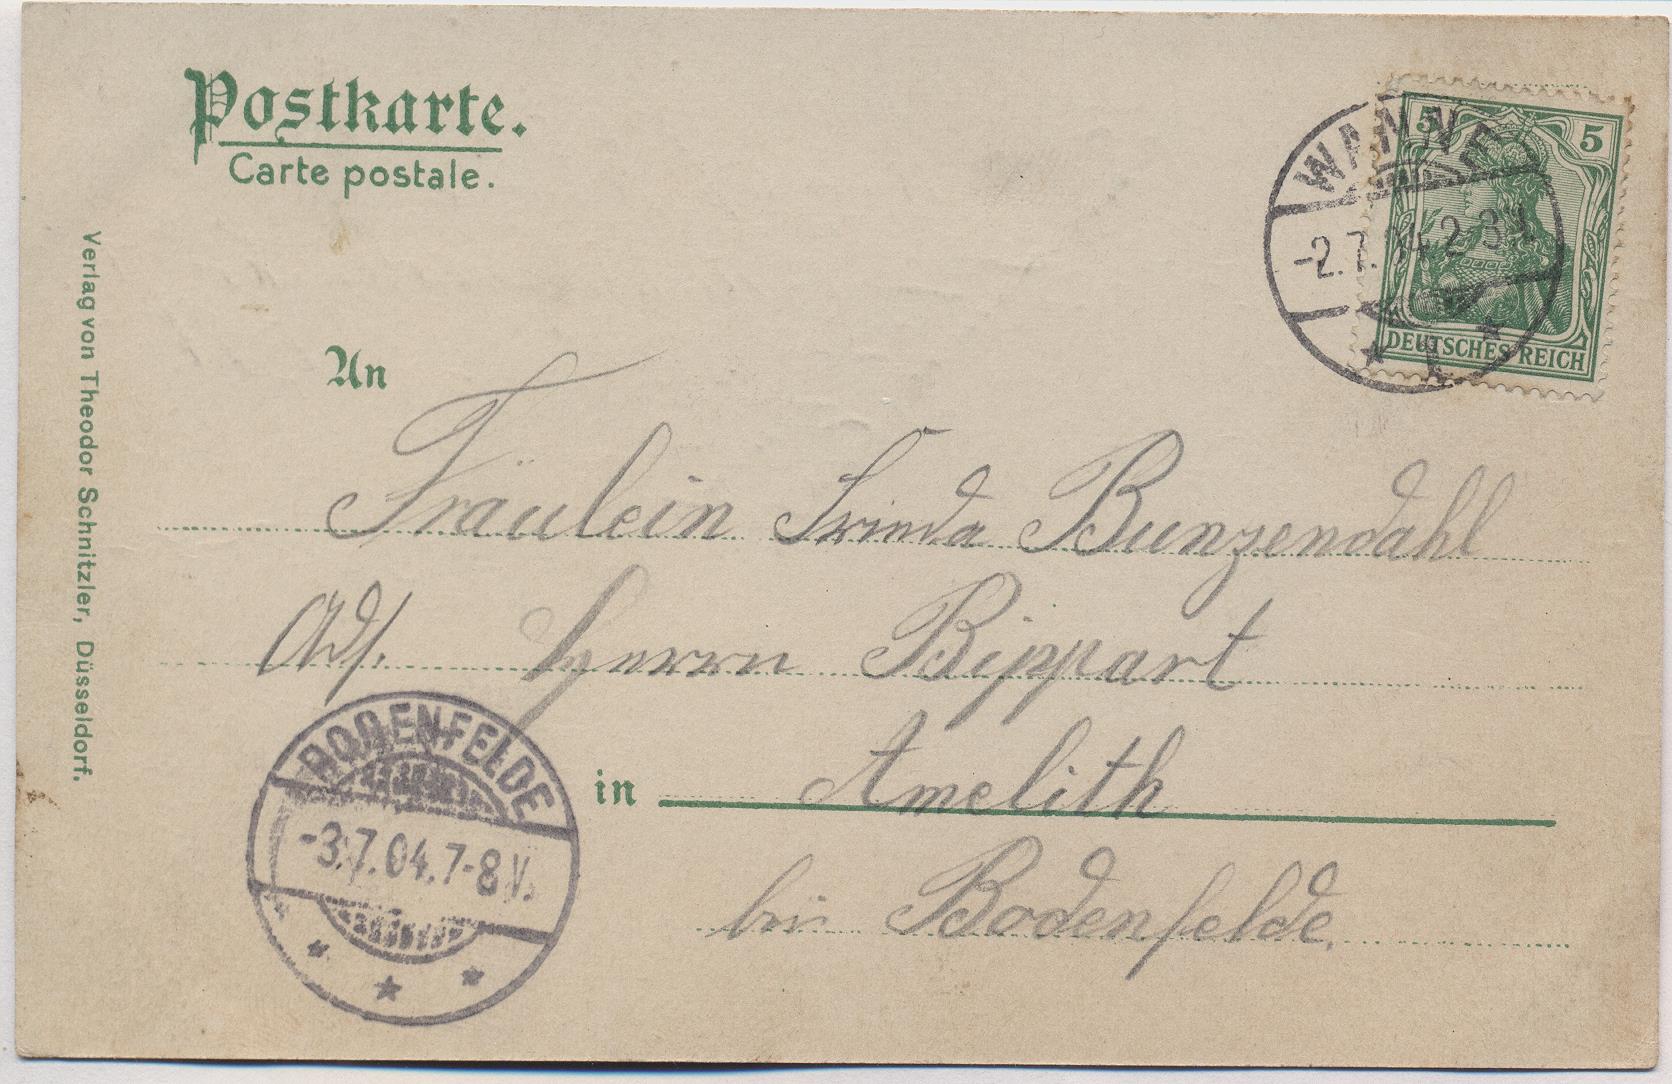 Postkarte.
Carte postale.
WANNE
-2.7.04.2-3N
5 5
DEUTSCHES REICH
An
Fräulein Frinda Bunzendahl
Ad/. Herrn Bippart
in Amelith
bei Bodenfelde.
BODENFELDE
-3.7.04.7-8V.
Verlag von Theodor Schnitzler, Düsseldorf.